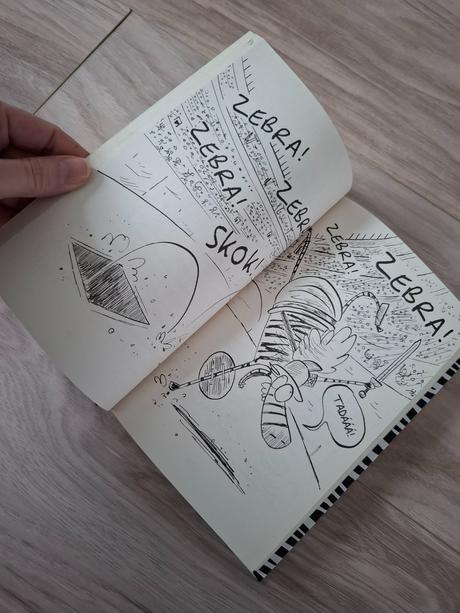 ZEBRA!
ZEBRA!
ZEBR
SKOK
ZEBRA!
ZEBRA!
TADÁÁÁ!